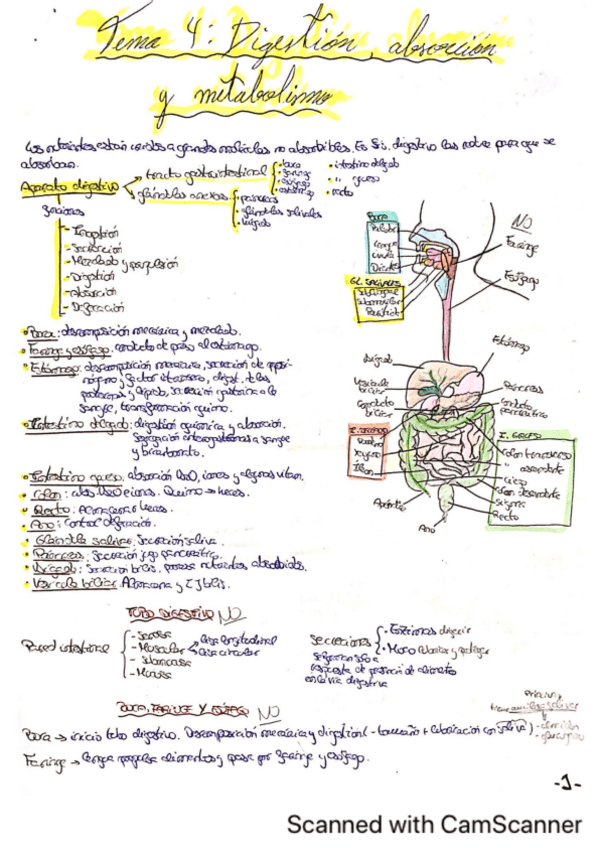 Tema 4: Digestión, absorción
y metabolismo
Los nutrientes están unidos a grandes moléculas no absorbibles. En Si. digestivo las rompe para que se
absorban.
Aparato digestivo
tracto gastrointestinal
• boca
• faringe
• esófago
• estómago
• intestino delgado
• " grueso
• recto
glándulas anexas
• páncreas
• glándulas salivales
• hígado
funciones
- Ingestión
- Secreción
- Mezclado y propulsión
- Digestión
- Absorción
- Defecación
• Boca: descomposición mecánica y mezclado.
• Faringe y esófago: conducto de paso al estómago.
• Estómago: descomposición mecánica, secreción de pepsi-
nógeno y factor intrínseco, digest. de las
proteínas y lípidos, secreción gastrina a la
sangre, transformación quimo.
• Intestino delgado: digestión química y absorción.
Segregación enterogastronas a sangre
y bicarbonato.
• Intestino grueso: absorción H2O, iones y algunas vitam.
• Colon: abs H2O e iones. Quimo → heces.
• Recto: Almacena heces.
• Ano: Control defecación.
• Glándula salivar: Secreción saliva.
• Páncreas: Secreción jugo pancreático.
• Hígado: Secreción bilis, procesa nutrientes absorbidos.
• Vesícula biliar: Almacena y [ ] bilis.
NO
Boca
Paladar
Lengua
Úvula
Dientes
GL. SALIVARES
Sublingual
Submaxilar
Parótida
Faringe
Esófago
Estómago
Hígado
Vesícula
biliar
Conducto
biliar
Páncreas
Conducto
pancreático
I. DELGADO
Yeyuno
Íleon
I. GRUESO
Colon transverso
" ascendente
Ciego
Colon descendente
Sigma
Recto
Apéndice
Ano
TUBO DIGESTIVO NO
Pared intestinal
- Serosa
- Muscular
capa longitudinal
capa circular
- Submucosa
- Mucosa
secreciones
• Enzimas digerir
• Moco lubricar y proteger
segregan solo a
respuesta de presencia de alimentos
en la vía digestiva
BOCA, FARINGE Y ESÓFAGO NO
Boca → inicio tubo digestivo. Descomposición mecánica y digestión (- tamaño + lubricación con saliva)
Faringe → Lengua propulsa alimentos y pasa por faringe y esófago.
-1-
Scanned with CamScanner